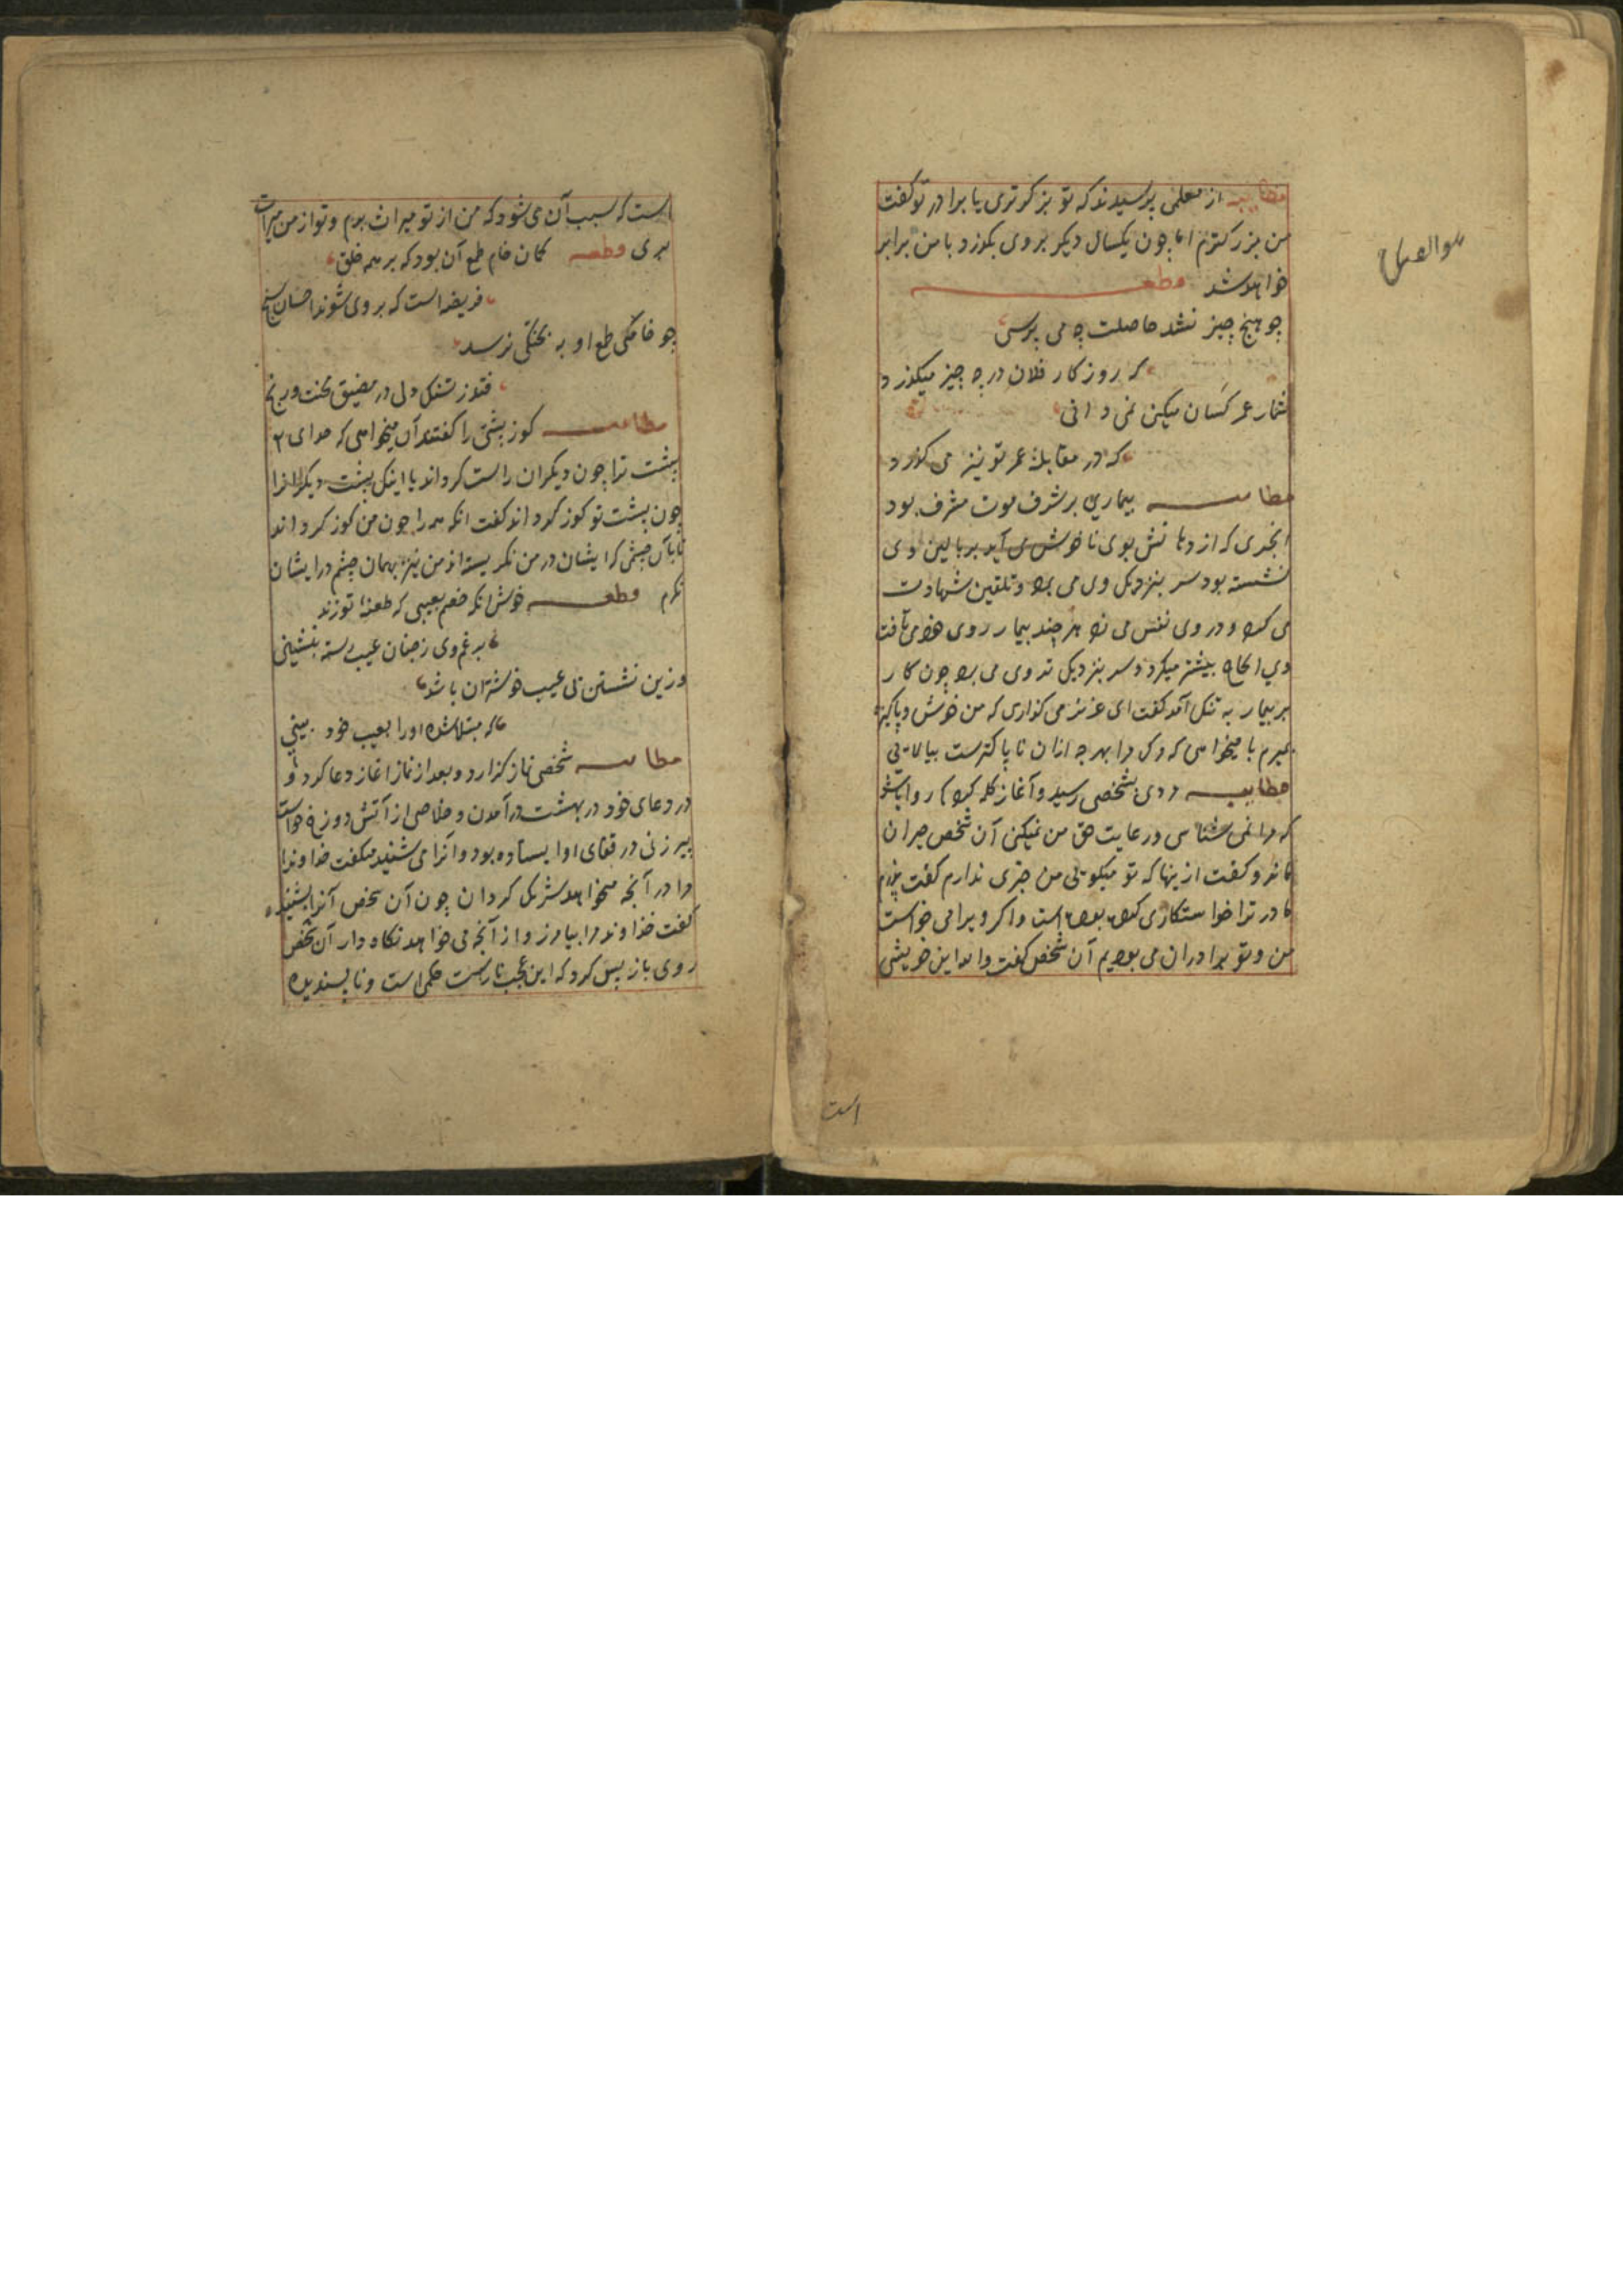 مطایبه از معلمی پرسیدند که تو بزرکرتری یا برادر تو کفت
من بزرکترم اما چون یکسال دیکر بر وی بکذرد با من برابر
خواهد شد قطعه
چو هیچ چیز نشد حاصلت چه می پرسی
که روزکار فلان در چه چیز میکذرد
شمار عمر کسان میکنی نمی دانی
که در مقابله عمر تو نیز می کذرد
مطایبه بیماری بر شرف موت مشرف بود
ابخری که از دهانش بوی ناخوش می آید بر بالین وی
نشسته بود سر بنزدیک وی می برد و تلقین شهادت
می کرد و در روی نفس می زد هر چند بیمار روی خود می تافت
وی الحاح بیشتر میکرد و سر بنزدیک تر وی می برد چون کار
بر بیمار به تنک آمد کفت ای عزیز می کذاری که من خوش و پاکیزه
بمیرم یا میخواهی که مرک مرا بهر چه ازان ناپاکترست بیالایی
مطایبه مردی بشخصی رسید و آغاز کله کرد که روا باشد
که مرا نمی شناسی و رعایت حق من نمیکنی آن شخص حیران
ماند و کفت ازینها که تو میکویی من خبری ندارم کفت پدرم
مادر ترا خواستکاری کرده بوده است و اکر ویرا می خواست
من و تو برادران می بودیم آن شخص کفت والله این خویشی
است
است که سبب آن می شود که من از تو میراث برم و تو از من میراث
بری قطعه کمان خام طمع آن بود که بر همه خلق
فریضه است که بر وی شوند احسان سنج
چو خامکی طمع او به پختکی نرسد
فتد ز تنکدلی در مضیق محنت و رنج
مطایبه کوز پشتی را کفتند آن میخواهی که خدای تع
پشت ترا چون دیکران راست کرداند یا اینکه پشت دیکرانرا
چون پشت تو کوز کرداند کفت انکه همه را چون من کوز کرداند
تا بآن چشمی که ایشان در من نکریسته اند من نیز بهمان چشم در ایشان
نکرم قطعه خوش انکه خصم بعیبی که طعنه تو زند
برغم وی ز چنان عیب رسته بنشینی
وزین نشستن بی عیب خوشتر آن باشد
که مبتلا شده او را بعیب خود بینی
مطایبه شخصی نماز کزارد و بعد از نماز اغاز دعا کرد و
در دعای خود در بهشت در آمدن و خلاصی از آتش دوزخ خواست
پیر زنی در قفای او ایستاده بود و آنرا می شنید میکفت خداوندا
مرا در آنچه میخواهد شریک کردان چون آن شخص آنرا بشنید
کفت خداوندا مرا بیامرز و از آنچه می خواهد نکاه دار آن شخص
روی باز پس کرد که این عجب ناراست حکمی است و ناپسندیده